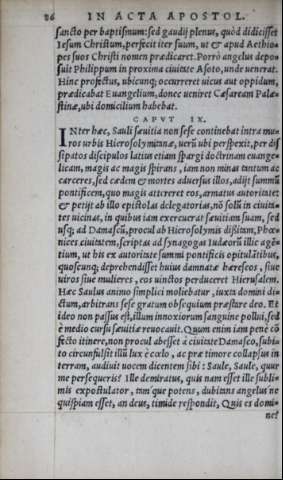 26 IN ACTA APOSTOL.
sancto per baptismum: sed gaudij plenus, quòd didicisset
Iesum Christum, perfecit iter suum, ut & apud Aethio-
pes suos Christi nomen prædicaret. Porrò angelus depo-
suit Philippum in proxima ciuitate Asoto, unde uenerat.
Hinc profectus, ubicunq; occurreret uicus aut oppidum,
prædicabat Euangelium, donec ueniret Cæsaream Palæ-
stinæ, ubi domicilium habebat.
CAPVT IX.
INter hæc, Sauli sæuitia non sese continebat intra mu-
ros urbis Hierosolymitanæ, uerū ubi perspexit, per dis
sipatos discipulos latius etiam spargi doctrinam euange-
licam, magis ac magis spirans, iam non minas tantum ac
carceres, sed cædem & mortes aduersus illos, adijt summū
pontificem, quo magis attereret eos, armatus autoritate:
& petijt ab illo epistolas delegatorias, nō solū in ciuita-
tes uicinas, in quibus iam exercuerat sæuitiam suam, sed
usq; ad Damascū, procul ab Hierosolymis dissitam, Phœ-
nices ciuitatem, scriptas ad synagogas Iudæorū illic agē-
tium, ut his ex autoritate summi pontificis opitulātibus,
quoscunq; deprehendisset huius damnatæ hæreseos, siue
uiros siue mulieres, eos uinctos perduceret Hierusalem.
Hæc Saulus animo simplici moliebatur, iuxta domini di-
ctum, arbitrans sese gratum obsequium præstare deo. Et
ideo non passus est, illum innoxiorum sanguine pollui, sed
è medio cursu sæuitiæ reuocauit. Quum enim iam penè cō
fecto itinere, non procul abesset à ciuitate Damasco, subi-
to circunfulsit illū lux è cœlo, ac præ timore collapsus in
terram, audiuit uocem dicentem sibi: Saule, Saule, quur
me persequeris? Ille demiratus, quis nam esset ille subli-
mis expostulator, tamque potens, dubitans angelus ne
quispiam esset, an deus, timide respondit, Quis es domi-
ne?